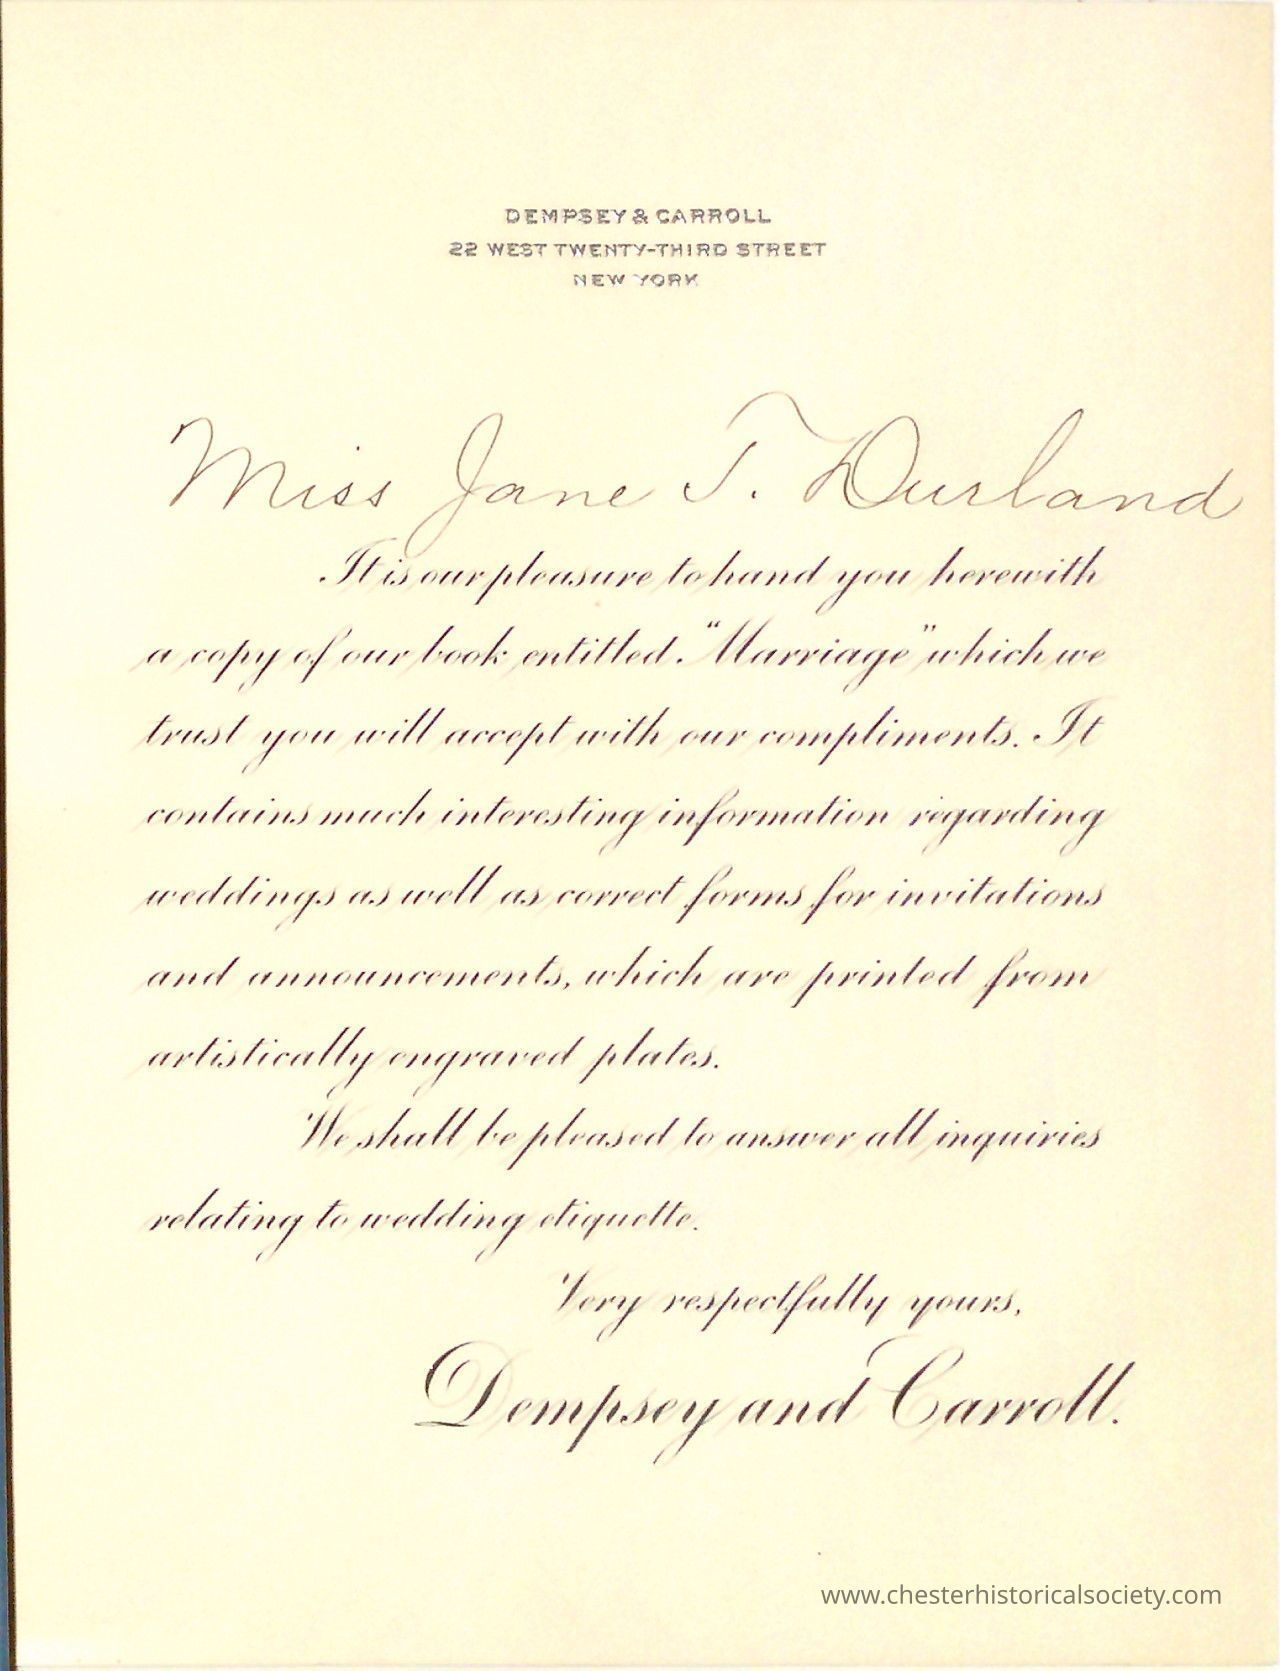 DEMPSEY & CARROLL
22 WEST TWENTY-THIRD STREET
NEW YORK
Miss Jane T. Durland
It is our pleasure to hand you herewith
a copy of our book entitled "Marriage" which we
trust you will accept with our compliments. It
contains much interesting information regarding
weddings as well as correct forms for invitations
and announcements, which are printed from
artistically engraved plates.
We shall be pleased to answer all inquiries
relating to wedding etiquette.
Very respectfully yours,
Dempsey and Carroll.
www.chesterhistoricalsociety.com